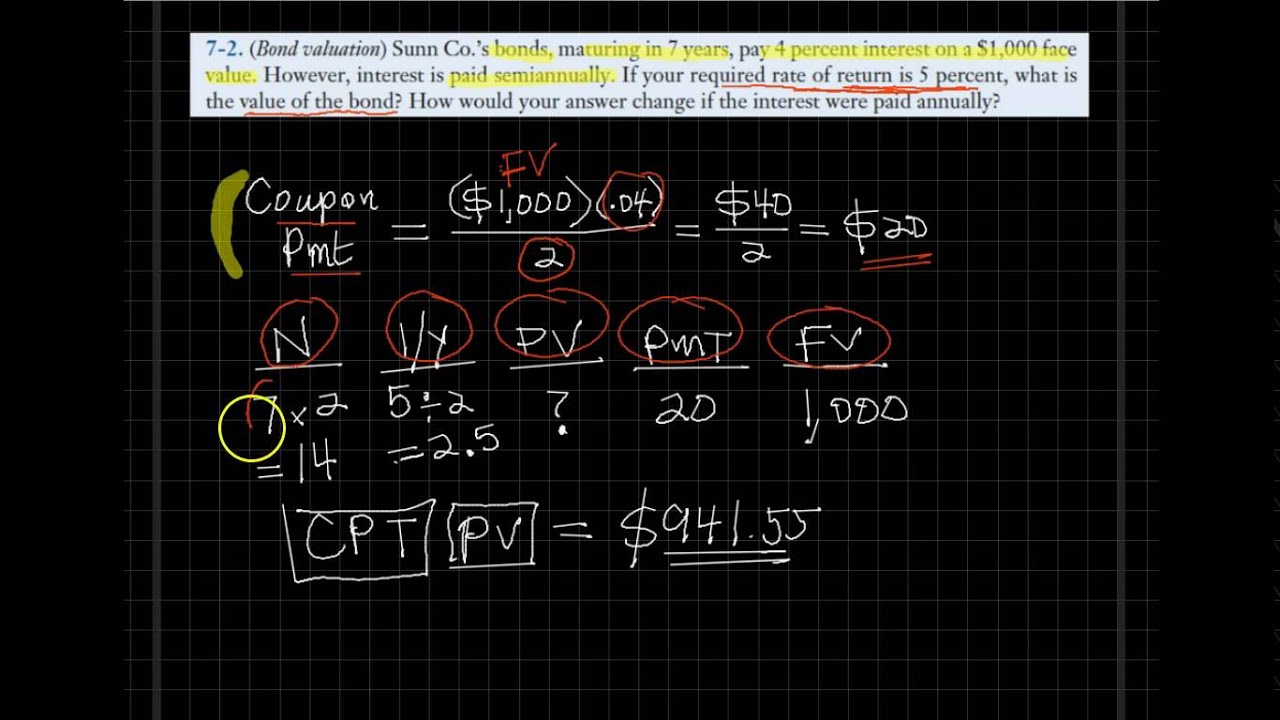 7-2. (Bond valuation) Sunn Co.'s bonds, maturing in 7 years, pay 4 percent interest on a $1,000 face
value. However, interest is paid semiannually. If your required rate of return is 5 percent, what is
the value of the bond? How would your answer change if the interest were paid annually?
FV
Coupon Pmt = ($1,000)(.04) / 2 = $40 / 2 = $20
N I/Y PV PmT FV
7 × 2 5 ÷ 2 ? 20 1,000
= 14 = 2.5
CPT PV = $941.55